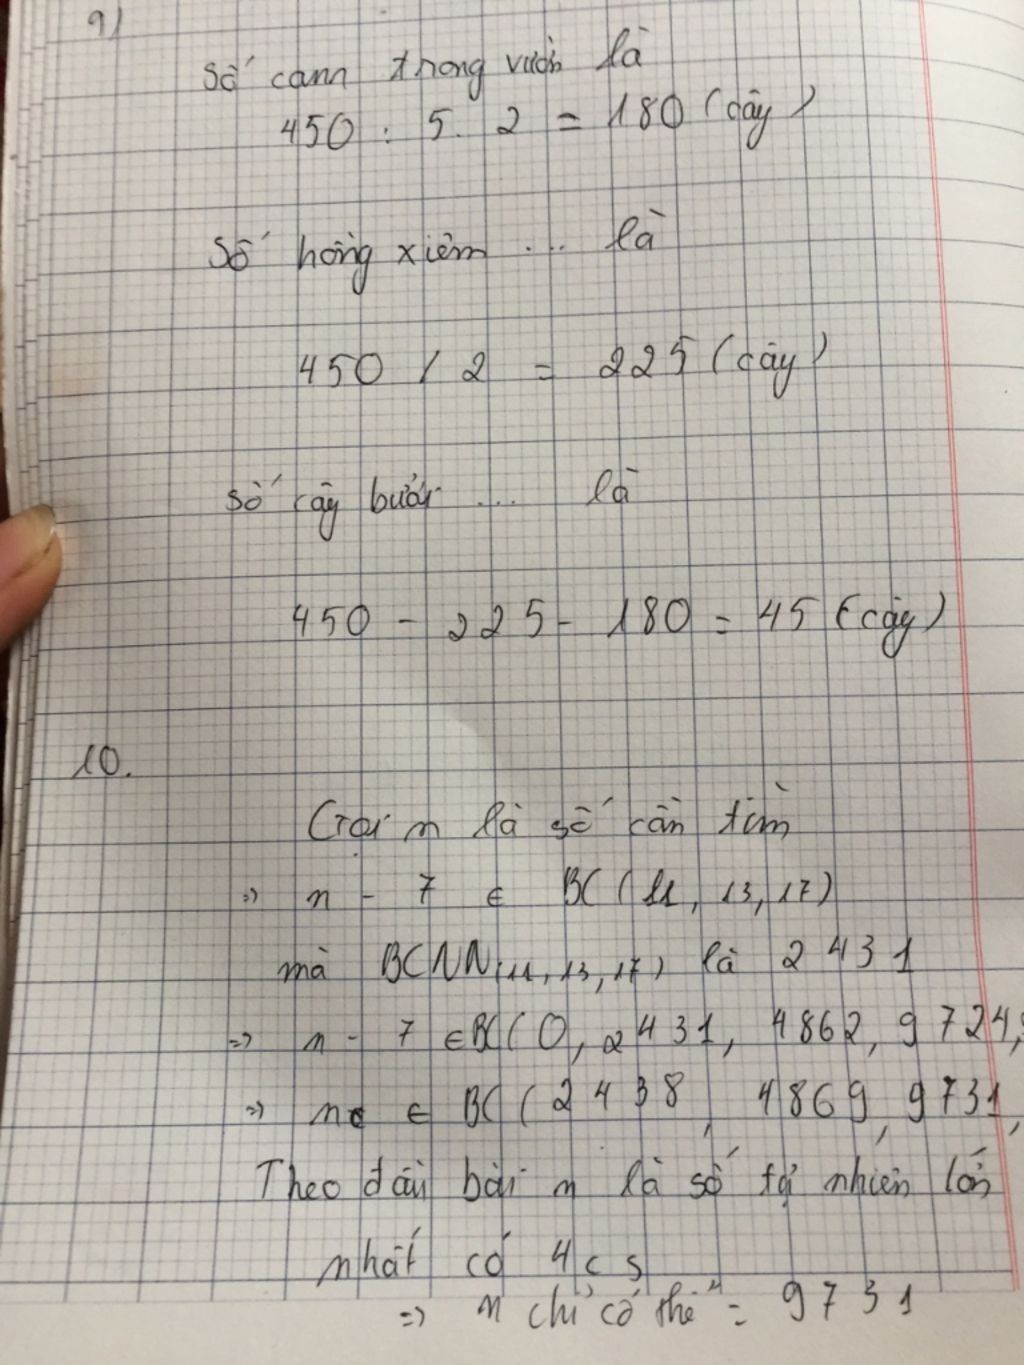 9)
Số cam trong vườn là
450 : 5 . 2 = 180 (cây)
Số hồng xiêm .... là
450 / 2 = 225 (cây)
Số cây bưởi .... là
450 - 225 - 180 = 45 (cây)
10.
Gọi n là số cần tìm
=> n - 7 ∈ BC (11, 13, 17)
mà BCNN(11, 13, 17) là 2431
=> n - 7 ∈ BC (0, 2431, 4862, 9724,
=> n ∈ BC (2438, 4869, 9731,
Theo đầu bài n là số tự nhiên lớn
nhất có 4 cs
=> n chỉ có thể = 9731